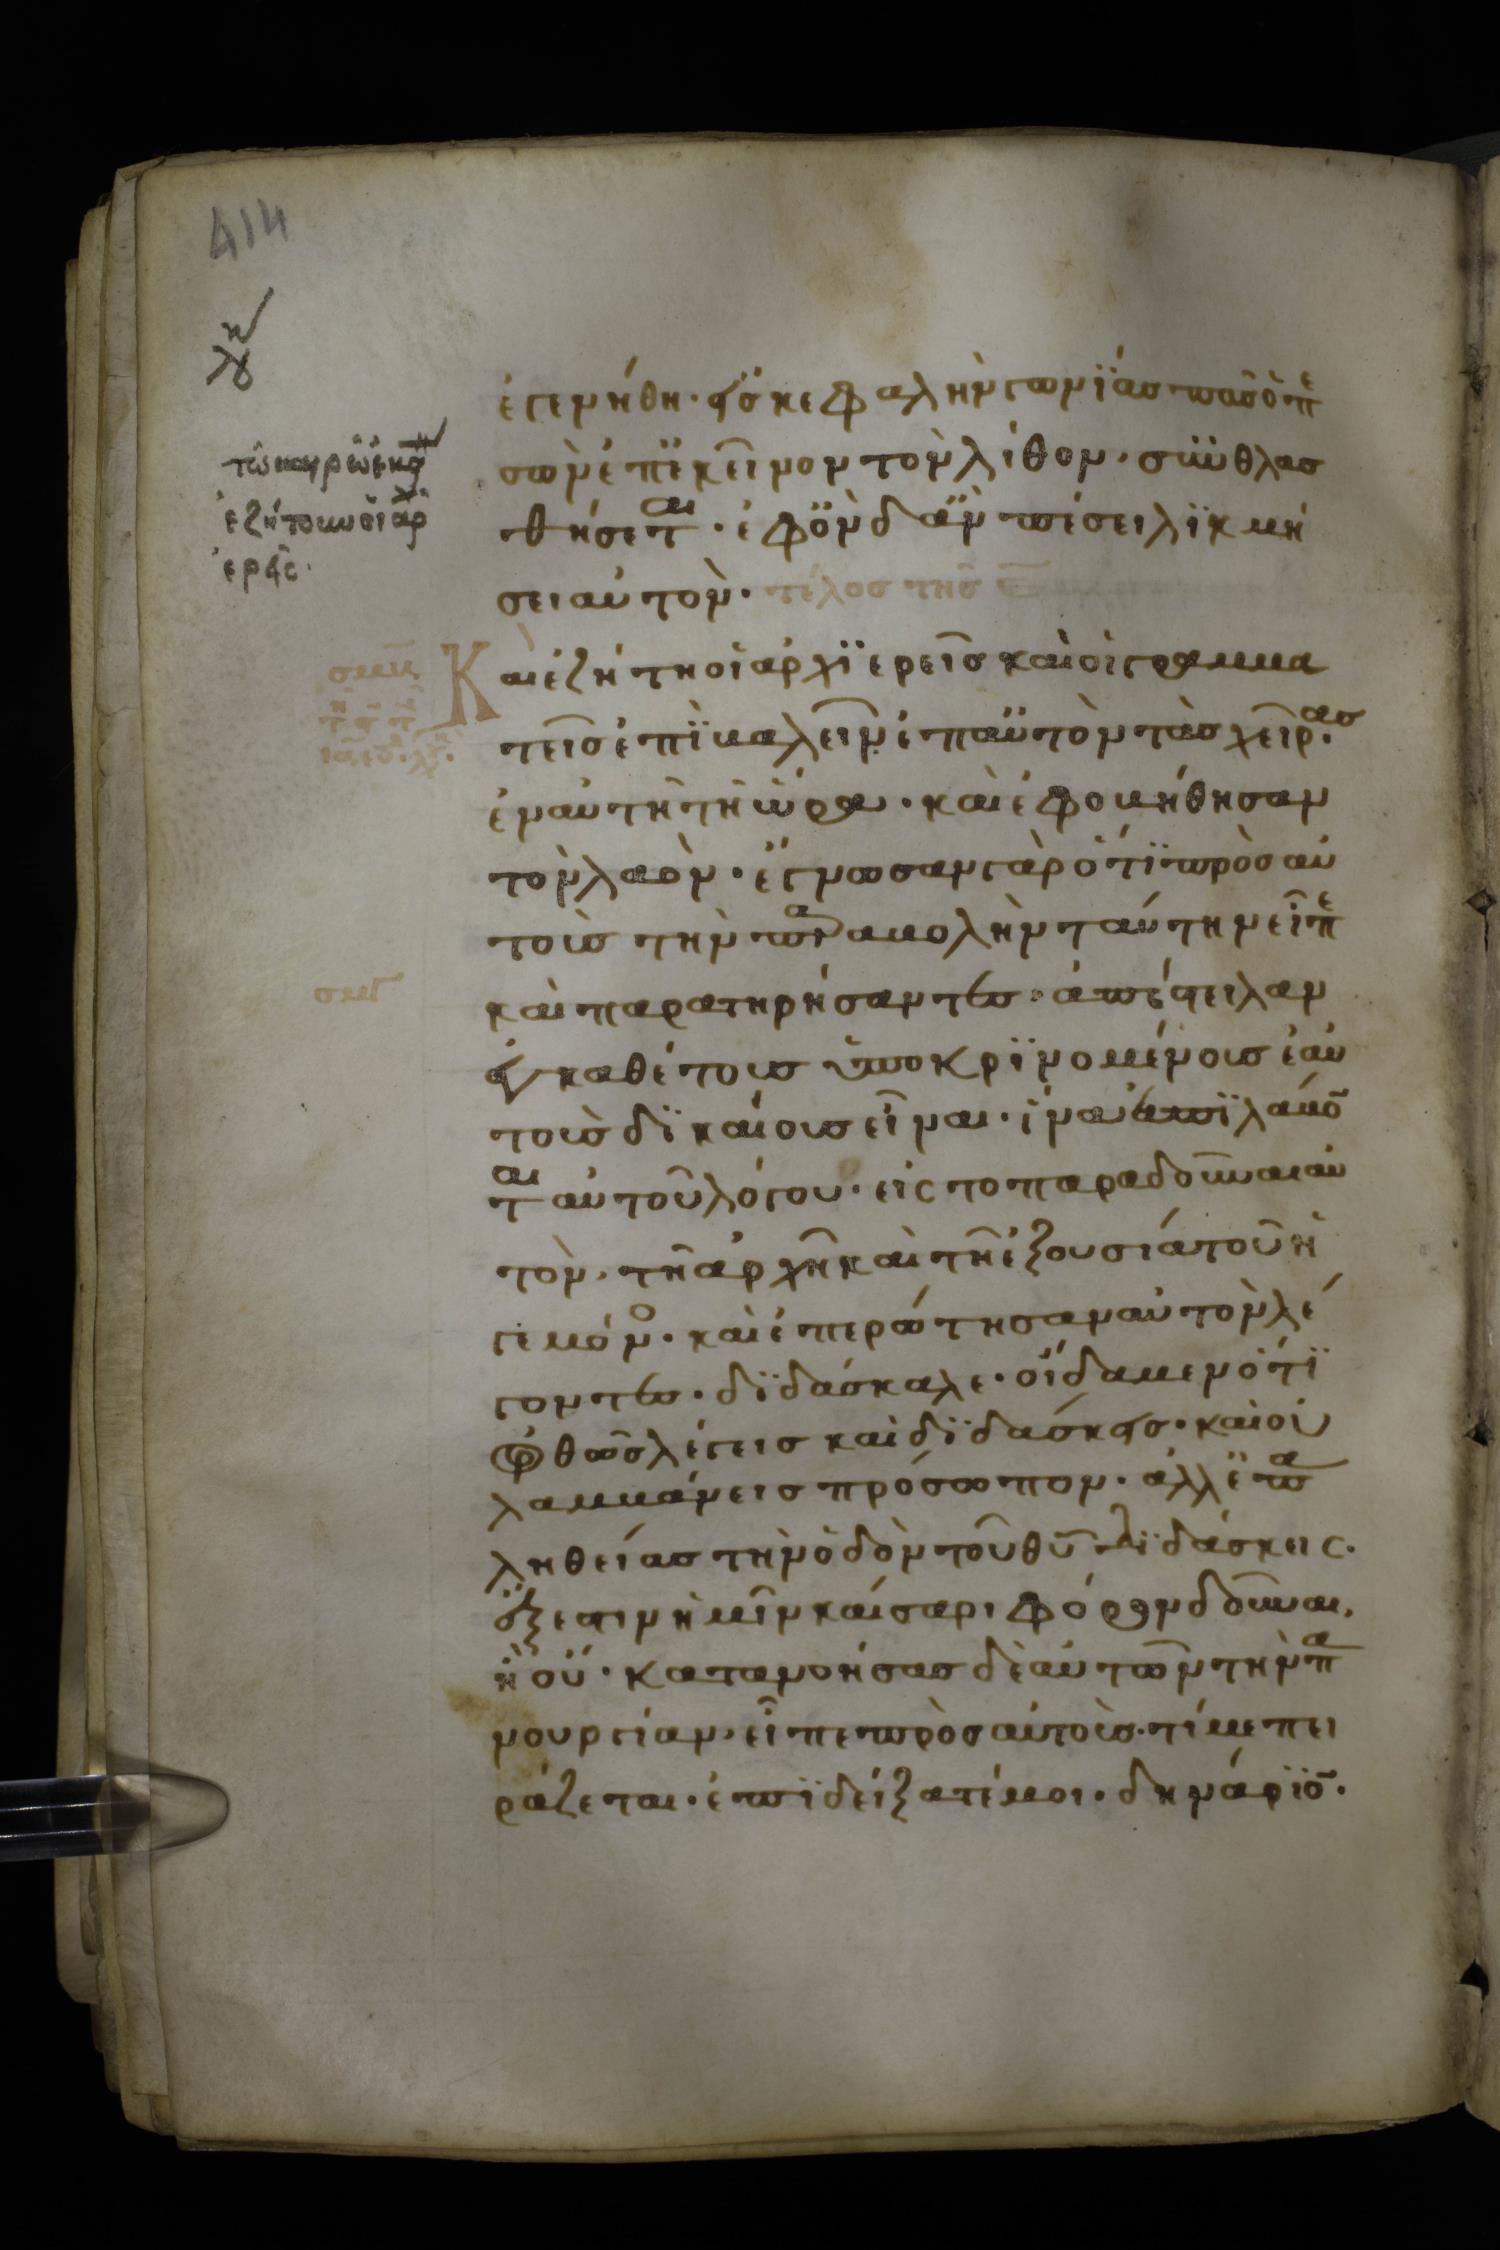 414
τῶ καιρῶ ἐκεί
ἐζήτουν οἱ ἀρ
ἐγενήθη· εἰς κεφαλὴν γωνίας πᾶς ὁ πε
σὼν ἐπ' ἐκεῖνον τὸν λίθον, συνθλασ
θήσεται· ἐφ' ὃν δ' ἂν πέσει λικμή
σει αὐτόν· τέλος τῆς
Καὶ ἐζήτη οἱ ἀρχιερεῖς καὶ οἱ γραμμα
τεῖς ἐπικαλεῖν ἐπ' αὐτὸν τὰς χεῖρας·
ἐν αὐτῆ τῆ ὥρα· καὶ ἐφοβήθησαν
τὸν λαόν· ἔγνωσαν γὰρ ὅτι πρὸς αὐ
τοὺς τὴν παραβολὴν ταύτην εἶπε
καὶ παρατηρήσαντες· ἀπέστειλαν
ἐγκαθέτους ὑποκρινομένους ἑαυ
τοὺς δικαίους εἶναι· ἵνα ἐπιλάβων
ται αὐτοῦ λόγου· εἰς τὸ παραδοῦναι αὐ
τὸν, τῆ ἀρχῆ καὶ τῆ ἐξουσία τοῦ ἡ
γεμόνος· καὶ ἐπερώτησαν αὐτὸν λέ
γοντες· διδάσκαλε· οἴδαμεν ὅτι
ὀρθῶς λέγεις καὶ διδάσκεις· καὶ οὐ
λαμβάνεις πρόσωπον· ἀλλ' ἐπ' ἀ
ληθείας τὴν ὁδὸν τοῦ θυ διδάσκεις·
ἔξεστιν ἡμῖν καίσαρι φόρον δοῦναι,
ἢ οὔ· κατανοήσας δὲ αὐτῶν τὴν πα
νουργίαν, εἶπε πρὸς αὐτούς· τί με πει
ράζεται· ἐπιδείξατέ μοι· δηνάριον·